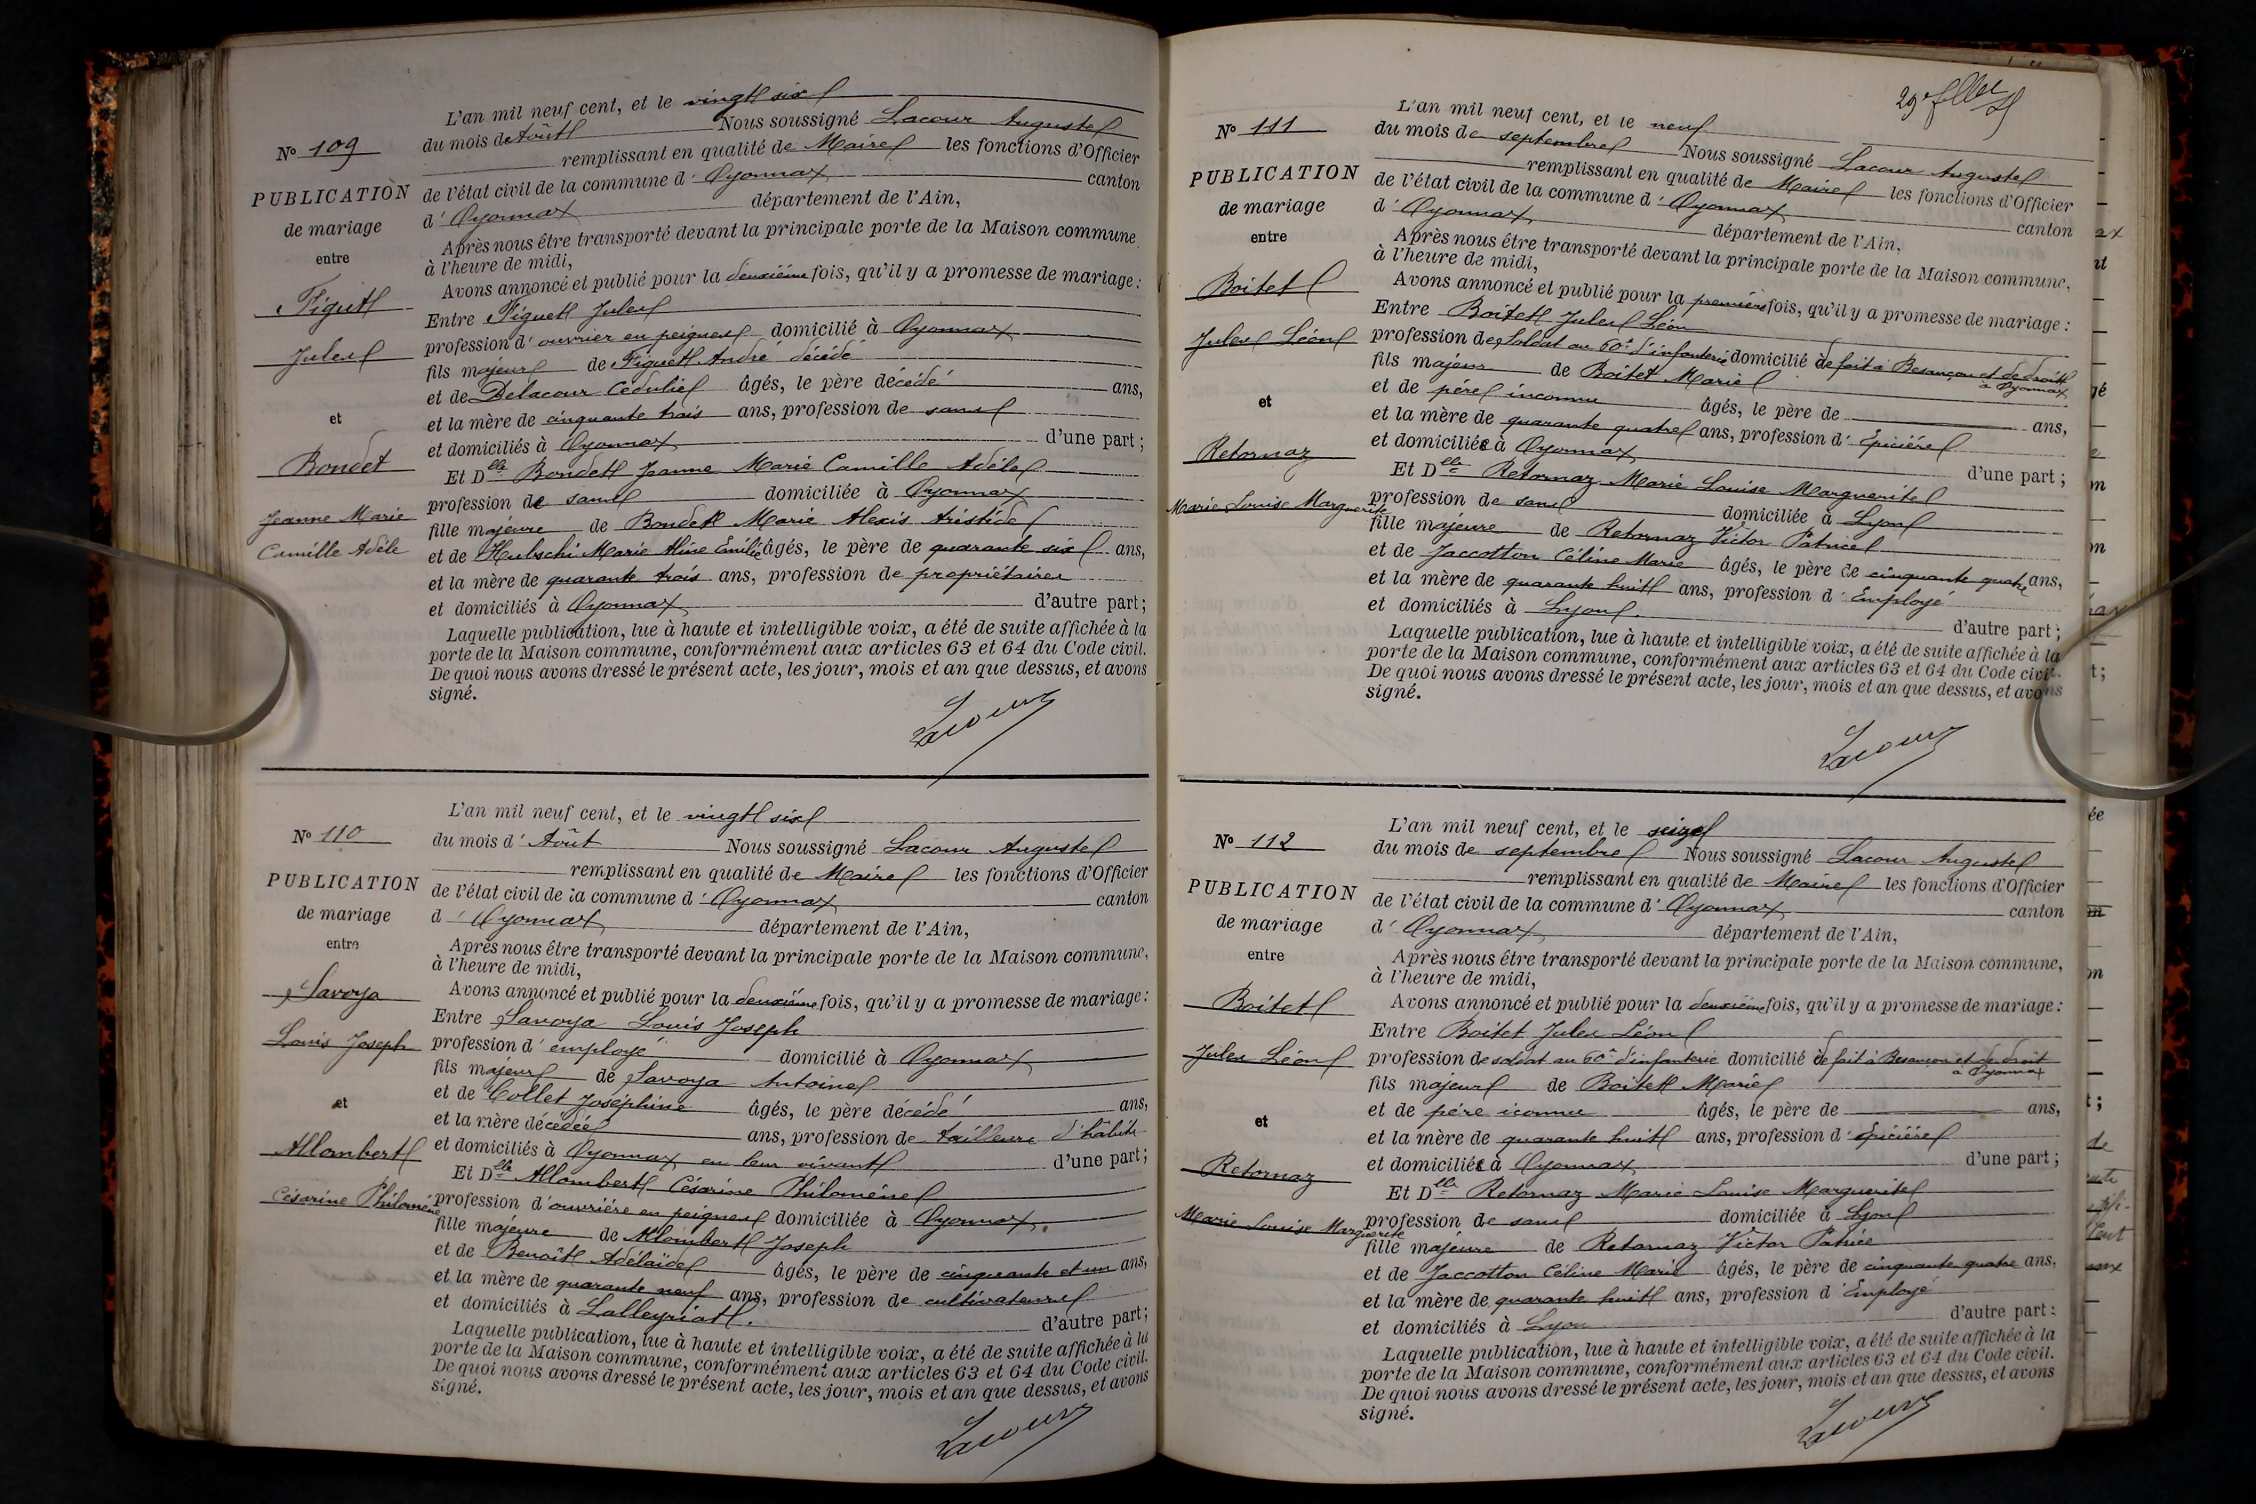 L'an mil neuf cent, et le vingt six
du mois de Août Nous soussigné Lacour Auguste
N° 109
remplissant en qualité de Maire les fonctions d'Officier
PUBLICATION
de l'état civil de la commune d' Oyonnax canton
de mariage
d' Oyonnax département de l'Ain,
entre
Après nous être transporté devant la principale porte de la Maison commune
à l'heure de midi,
Avons annoncé et publié pour la deuxième fois, qu'il y a promesse de mariage :
Figuet
Entre Figuet Jules
Jules
profession d' ouvrier en peignes domicilié à Oyonnax
fils majeur de Figuet André décédé
et de Delacour Cédulie âgés, le père décédé ans,
et
et la mère de cinquante trois ans, profession de sans
et domiciliés à Oyonnax d'une part ;
Bondet
Et Dlle Bondet Jeanne Marie Camille Adèle
profession de sans domiciliée à Oyonnax
Jeanne Marie
fille majeure de Bondet Marie Alexis Aristide
Camille Adèle
et de Hubschi Marie Aline Emilie âgés, le père de quarante six ans,
et la mère de quarante trois ans, profession de propriétaires
et domiciliés à Oyonnax d'autre part ;
Laquelle publication, lue à haute et intelligible voix, a été de suite affichée à la
porte de la Maison commune, conformément aux articles 63 et 64 du Code civil.
De quoi nous avons dressé le présent acte, les jour, mois et an que dessus, et avons
signé.
Lacour
L'an mil neuf cent, et le vingt six
N° 110
du mois d' Août Nous soussigné Lacour Auguste
remplissant en qualité de Maire les fonctions d'Officier
PUBLICATION
de l'état civil de la commune d' Oyonnax canton
de mariage
d' Oyonnax département de l'Ain,
entre
Après nous être transporté devant la principale porte de la Maison commune,
à l'heure de midi,
Savoya
Avons annoncé et publié pour la deuxième fois, qu'il y a promesse de mariage :
Entre Savoya Louis Joseph
Louis Joseph
profession d' employé domicilié à Oyonnax
fils majeur de Savoya Antoine
et de Collet Joséphine âgés, le père décédé ans,
et
et la mère décédée ans, profession de tailleurs d'habits
et domiciliés à Oyonnax en leur vivant d'une part ;
Allombert
Et Dlle Allombert Césarine Philomène
Césarine Philomène
profession d' ouvrière en peignes domiciliée à Oyonnax.
fille majeure de Allombert Joseph
et de Benoît Adélaïde âgés, le père de cinquante et un ans,
et la mère de quarante neuf ans, profession de cultivateurs
et domiciliés à Lalleyriat. d'autre part ;
Laquelle publication, lue à haute et intelligible voix, a été de suite affichée à la
porte de la Maison commune, conformément aux articles 63 et 64 du Code civil.
De quoi nous avons dressé le présent acte, les jour, mois et an que dessus, et avons
signé.
Lacour
L'an mil neuf cent, et le neuf
N° 111
du mois de septembre Nous soussigné Lacour Auguste
remplissant en qualité de Maire les fonctions d'Officier
PUBLICATION
de l'état civil de la commune d' Oyonnax canton
de mariage
d' Oyonnax département de l'Ain,
entre
Après nous être transporté devant la principale porte de la Maison commune,
à l'heure de midi,
Boitet
Avons annoncé et publié pour la première fois, qu'il y a promesse de mariage :
Entre Boitet Jules Léon
Jules Léon
profession de Soldat au 60e d'infanterie domicilié de fait à Besançon et de droit
à Oyonnax
fils majeur de Boitet Marie
et de père inconnu âgés, le père de ans,
et
et la mère de quarante quatre ans, profession d' Epicière
et domiciliée à Oyonnax d'une part ;
Retornaz
Et Dlle Retornaz Marie Louise Marguerite
Marie Louise Marguerite
profession de sans domiciliée à Lyon
fille majeure de Retornaz Victor Patrice
et de Jaccotton Céline Marie âgés, le père de cinquante quatre ans,
et la mère de quarante huit ans, profession d' Employé
et domiciliés à Lyon d'autre part ;
Laquelle publication, lue à haute et intelligible voix, a été de suite affichée à la
porte de la Maison commune, conformément aux articles 63 et 64 du Code civil.
De quoi nous avons dressé le présent acte, les jour, mois et an que dessus, et avons
signé.
Lacour
L'an mil neuf cent, et le seize
N° 112
du mois de septembre Nous soussigné Lacour Auguste
remplissant en qualité de Maire les fonctions d'Officier
PUBLICATION
de l'état civil de la commune d' Oyonnax canton
de mariage
d' Oyonnax département de l'Ain,
entre
Après nous être transporté devant la principale porte de la Maison commune,
à l'heure de midi,
Boitet
Avons annoncé et publié pour la deuxième fois, qu'il y a promesse de mariage :
Entre Boitet Jules Léon
Jules Léon
profession de soldat au 60e d'infanterie domicilié de fait à Besançon et de droit
à Oyonnax
fils majeur de Boitet Marie
et de père iconnu âgés, le père de ans,
et
et la mère de quarante huit ans, profession d' Epicière
et domiciliée à Oyonnax d'une part ;
Retornaz
Et Dlle Retornaz Marie Louise Marguerite
Marie Louise Marguerite
profession de sans domiciliée à Lyon
fille majeure de Retornaz Victor Patrice
et de Jaccotton Céline Marie âgés, le père de cinquante quatre ans,
et la mère de quarante huit ans, profession d' Employé
et domiciliés à Lyon d'autre part :
Laquelle publication, lue à haute et intelligible voix, a été de suite affichée à la
porte de la Maison commune, conformément aux articles 63 et 64 du Code civil.
De quoi nous avons dressé le présent acte, les jour, mois et an que dessus, et avons
signé.
Lacour